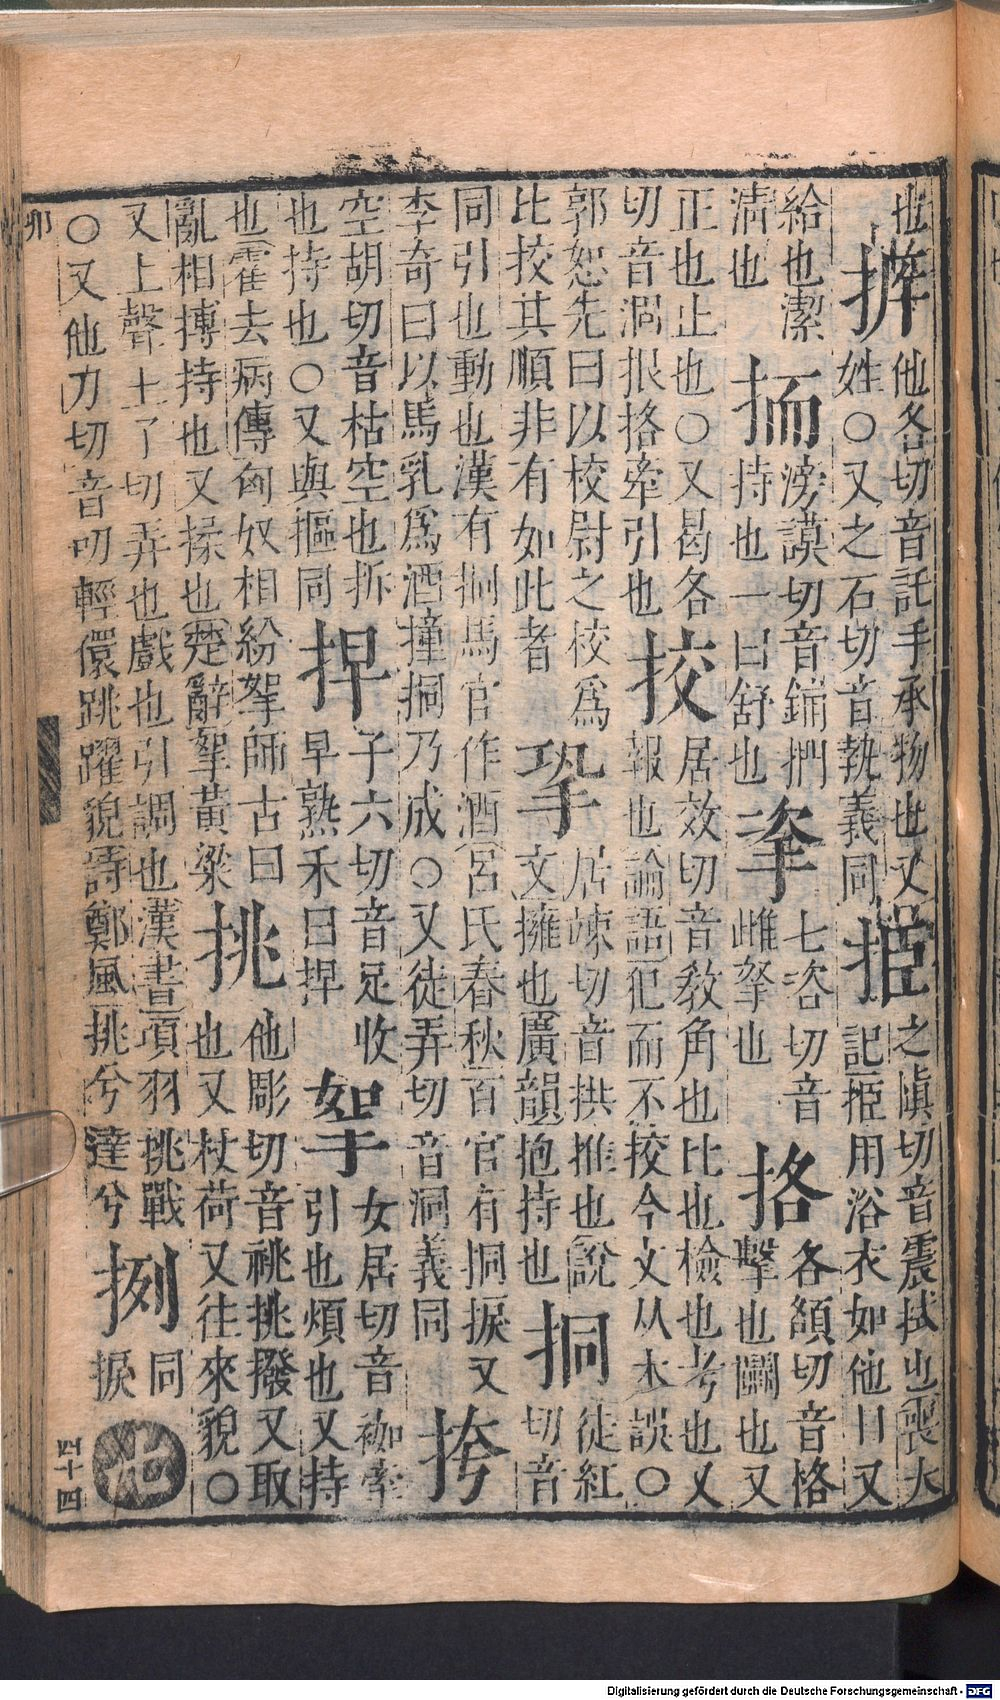 也
他各切音託手承物也又
姓○又之石切音執義同
挋
之慎切音震拭也喪大
記挋用浴衣如他日又
給也潔
清也
滂謨切音鋪捫
持也一曰舒也
七恣切音
雌拏也
挌
各額切音格
擊也鬭也又
正也止也○又曷各
切音涸拫挌牽引也
挍
居效切音教角也比也檢也考也又
報也論語犯而不挍今文从木誤○
郭恕先曰以校尉之校爲
比挍其順非有如此者
㧬
居竦切音拱推也說
文擁也廣韻抱持也
挏
徒紅
切音
同引也動也漢有挏馬官作酒呂氏春秋百官有挏捩又
李奇曰以馬乳爲酒撞挏乃成○又徒弄切音洞義同
挎
空胡切音枯空也拆
也持也○又與摳同
子六切音足收
早熟禾曰
挐
女居切音袽牽
引也煩也又持
也霍去病傳匈奴相紛挐師古曰
亂相搏持也又揉也楚辭挐黃粱
挑
他彫切音祧挑撥又取
也又杖荷又往來貌○
又上聲土了切弄也戲也引調也漢書項羽挑戰
○又他刀切音叨輕儇跳躍貌詩鄭風挑兮達兮
挒
同
捩
卯
四十四
Digitalisierung gefördert durch die Deutsche Forschungsgemeinschaft - DFG